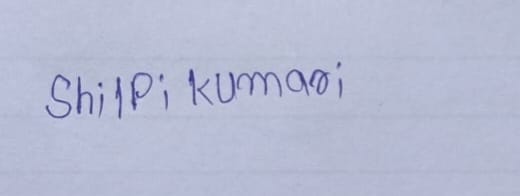 Shilpi kumari